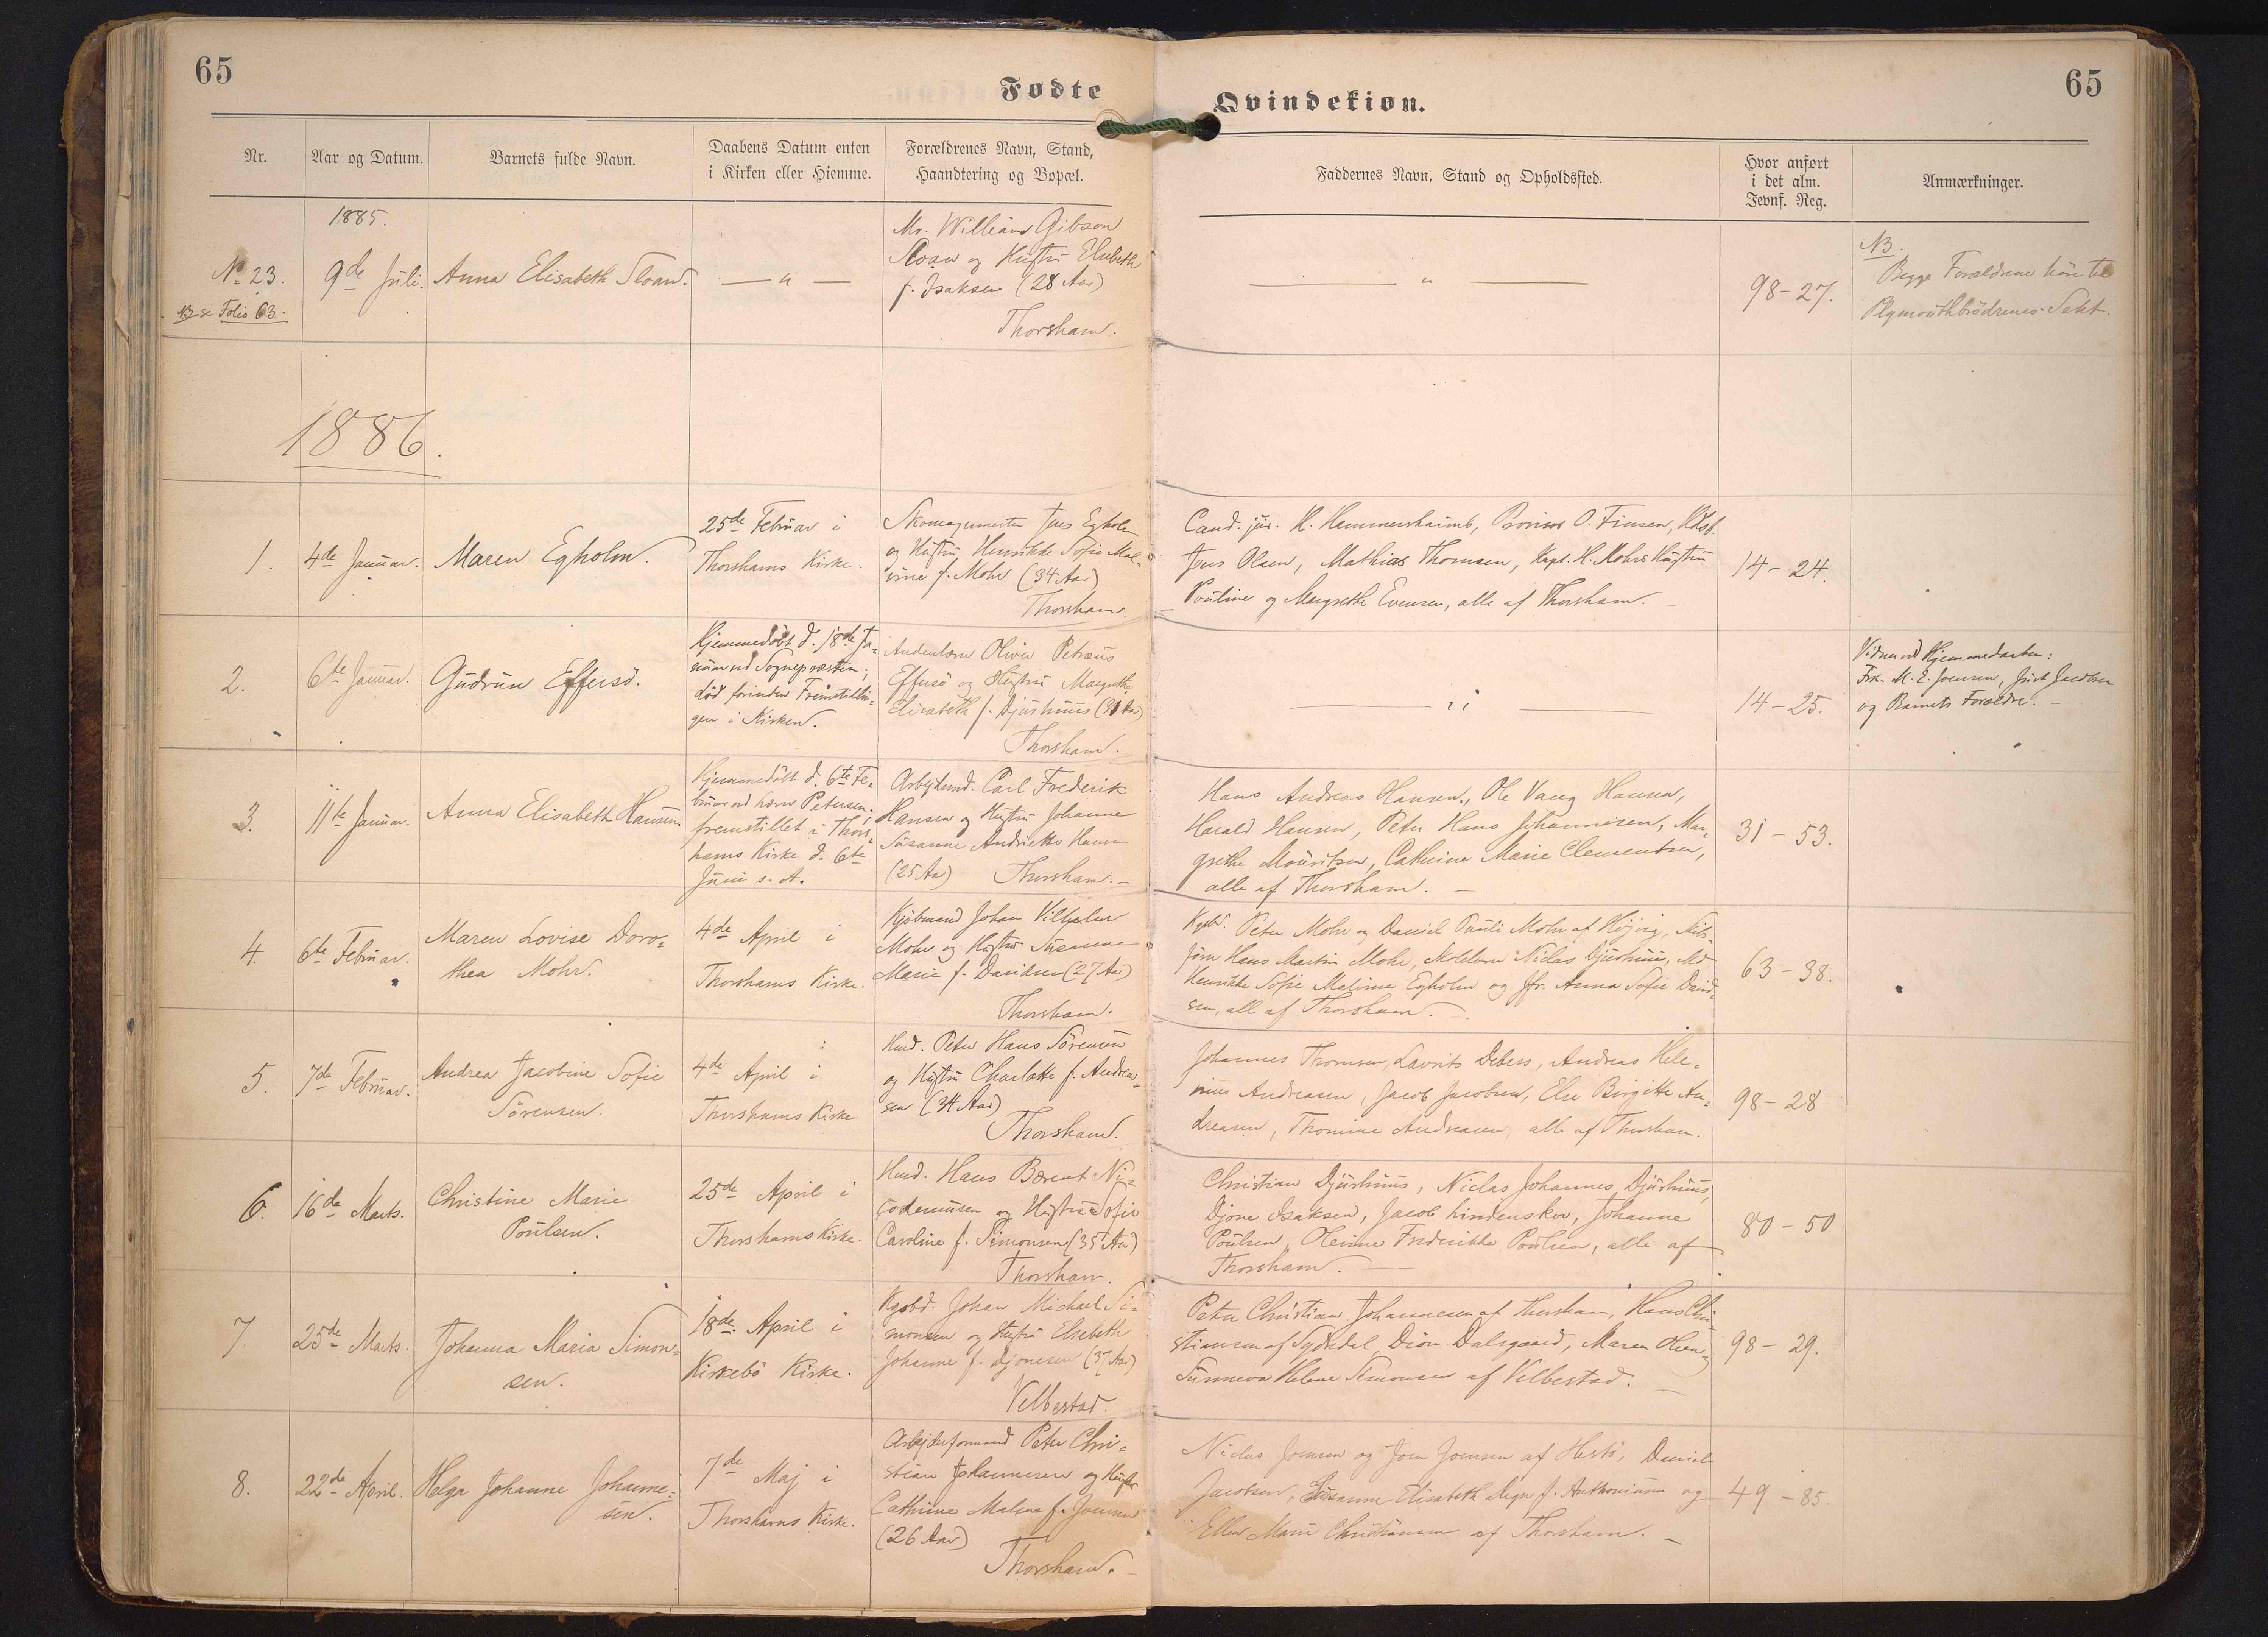 65
65
Fødte
Qvindekiøn.
Nr.
Aar og Datum.
Barnets fulde Navn.
Daabens Datum enten
i Kirken eller Hiemme.
Forældrenes Navn, Stand,
Haandtering og Bopæl.
Faddernes Navn, Stand og Opholdssted.
Hvor anført
i det alm.
Jevnf. Reg.
Anmærkninger.
1885.
No 23.
NB se Folio 63.
9de Juli.
Anna Elisabeth Sloan.
— " —
Mr. William Gibson
Sloan og Hustru Elsebeth
f. Isaksen (28 Aar)
Thorshavn.
— " —
98-27.
NB.
Begge Forældrene høre til
Plymouthbrødrenes Sekt.
1886.
1.
4de Januar.
Maren Egholm.
25de Februar i
Thorshavns Kirke.
Skomagermester Jens Egholm
og Hustru Henrikke Sofie Mal-
vine f. Mohr (34 Aar)
Thorshavn
Cand. jur. H. Hammershaimb, Provisor O. Finsen,
Jens Olsen, Mathias Thomsen, Kapt. H. Mohrs Hustru
Pouline og Margrethe Evensen, alle af Thorshavn.
14-24.
2.
6te Januar.
Gudrun Effersö.
Hjemmedöbt d. 18de Ja-
nuar ved Sognepræsten;
död forinden Fremstillin-
gen i Kirken.
Andenlærer Oliver Petræus
Effersö og Hustru Margrethe
Elisabeth f. Djurhuus
Thorshavn.
— " —
14-25.
Vidner ved Hjemmedaaben:
Frk. M. E. Joensen,
og Barnets Forældre.
3.
11te Januar.
Anna Elisabeth Hansen.
Hjemmedöbt d. 6te Fe-
bruar ved Lærer Petersen;
fremstillet i Thors-
havns Kirke d. 6te
Juni s. A.
Arbejdsmd. Carl Frederik
Hansen og Hustru Johanne
Susanne Andrietta Hansen
(25 Aar) Thorshavn.
Hans Andreas Hansen, Ole Vang Hansen,
Harald Hansen, Peter Hans Johannesen, Mar-
grethe Mouritsen, Cathrine Marie Clementsen,
alle af Thorshavn.
31-53.
4.
6te Februar.
Maren Lovise Doro-
thea Mohr.
4de April i
Thorshavns Kirke.
Kjöbmand Johan Vilhelm
Mohr og Hustru Susanne
Marie f. Davidsen (27 Aar)
Thorshavn.
Kgsbd. Peter Mohr og Daniel Pauli Mohr af Hojvig,
Hans Martin Mohr, Skolelærer Niclas Djurhuus,
Henrikke Sofie Malvine Egholm og Jfr. Anna Sofie David-
sen, all af Thorshavn.
63-38.
5.
7de Februar.
Andrea Jacobine Sofie
Sörensen.
4de April i
Thorshavns Kirke
Hmd. Peter Hans Sörensen
og Hustru Charlotte f. Andrea-
sen (34 Aar)
Thorshavn.
Johannes Thomsen, Lavrits Debess, Andreas Hele-
nius Andreasen, Jacob Jacobsen, Else Birgitte An-
dreasen, Thomine Andreasen, alle af Thorshavn.
98-28
6.
16de Marts.
Christine Marie
Poulsen.
25de April i
Thorshavns Kirke.
Hmd. Hans Berent Ni-
codemusen og Hustru Sofie
Caroline f. Simonsen (35 Aar)
Thorshavn.
Christian Djurhuus, Niclas Johannes Djurhuus,
Djone Isaksen, Jacob Lindenskov, Johanne
Poulsen, Olevine Frederikke Poulsen, alle af
Thorshavn.
80-50
7.
25de Marts.
Johanna Maria Simon-
sen.
18de April i
Kirkebö Kirke.
Kgsbd. Johan Michael Si-
monsen og Hustru Elsebeth
Johanne f. Djonesen (37 Aar)
Velbestad.
Peter Christian Johannesen af Thorshavn, Hans Chri-
stiansen af Sydredal, Dion Dalsgaard, Maren Olsen,
Sunneva Helene Simonsen af Velbestad.
98-29.
8.
22de April.
Helga Johanne Johanne-
sen.
7de Maj i
Thorshavns Kirke.
Arbejderformand Peter Chri-
stian Johannesen og Hustru
Cathrine Malene f. Joensen
(26 Aar)
Thorshavn.
Niclas Joensen og Joen Joensen af Hestö, Daniel
Jacobsen, Susanne Elisabeth f. Anthoniussen og
Ellen Marie Christiansen af Thorshavn.
49-85.